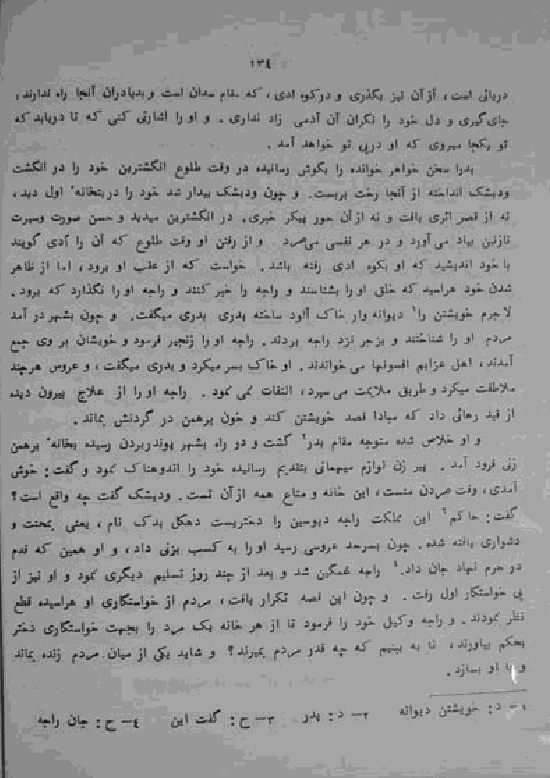 ۱۳٤
دریائی است، از آن نیز بگذری و در کوه ادی، که مقام سدان است و بدیادران آنجا راه ندارند،
جای گیری و دل خود را نگران آن آدمی زاد نداری. و او را اشارتی کنی که تا دریابد که
تو بکجا میروی که او در پی تو خواهد آمد.
بدرا سخن خواهر خوانده را بگوش رسانیده در وقت طلوع انگشترین خود را در انگشت
ودیشک انداخته از آنجا رخت بربست. و چون ودیشک بیدار شد خود را در بتخانه اول دید،
نه از قصر اثری یافت و نه از آن حور پیکر خبری. در انگشترین میدید و حسن صورت وسیرت
نازنین بیاد می آورد و در هر نفسی می مرد و از رفتن او وقت طلوع که آن را آدی گویند
با خود اندیشید که او بکوه ادی رفته باشد. خواست که از عقب او برود، اما از ظاهر
شدن خود هراسید که خلق او را بشناسند و راجه را خبر کنند و راجه او را نگذارد که برود.
لاجرم خویشتن را۱ دیوانه وار خاک آلود ساخته بدری بدری میگفت. و چون بشهر در آمد
مردم او را شناختند و بزجر نزد راجه بردند. راجه او را زنجیر فرمود و خویشان بر وی جمع
آمدند، اهل عزایم افسونها می خواندند. او خاک بسر میکرد و بدری میگفت، و عروس هرچند
ملاطفت میکرد و طریق ملایمت می سپرد، التفات نمی نمود. راجه او را از علاج بیرون دیده
از قید رهائی داد که مبادا قصد خویشتن کند و خون برهمن در گردنش بماند.
و او خلاص شده متوجه مقام بدر۲ گشت و در راه بشهر پوندربردن رسیده بخانه برهمن
زنی فرود آمد. پیر زن لوازم میهمانی بتقدیم رسانیده خود را اندوهناک نمود و گفت: خوش
آمدی، وقت مردن منست، این خانه و متاع همه از آن تست. ودیشک گفت چه واقع است؟
گفت: حاکم۳ این مملکت راجه دیوسین را دختریست دهکل بدک نام، یعنی بمحنت و
دشواری یافته شده. چون بسرحد عروسی رسید او را به کسب بزنی داد، و او همین که قدم
در حرم نهاد جان داد.٤ راجه غمگین شد و بعد از چند روز تسلیم دیگری نمود و او نیز از
پی خواستگار اول رفت. و چون این قصه تکرار یافت، مردم از خواستگاری او هراسیده قطع
نظر نمودند. و راجه وکیل خود را فرمود تا از هر خانه یک مرد را بجهت خواستگاری دختر
بحکم بیاورند، تا به بینیم که چه قدر مردم بمیرند؟ و شاید یکی از میان مردم زنده بماند
و با او بسازد.
۱– د: خویشتن دیوانه ۲– د: بدر ۳– ح: گفت این ٤– ح: جان راجه